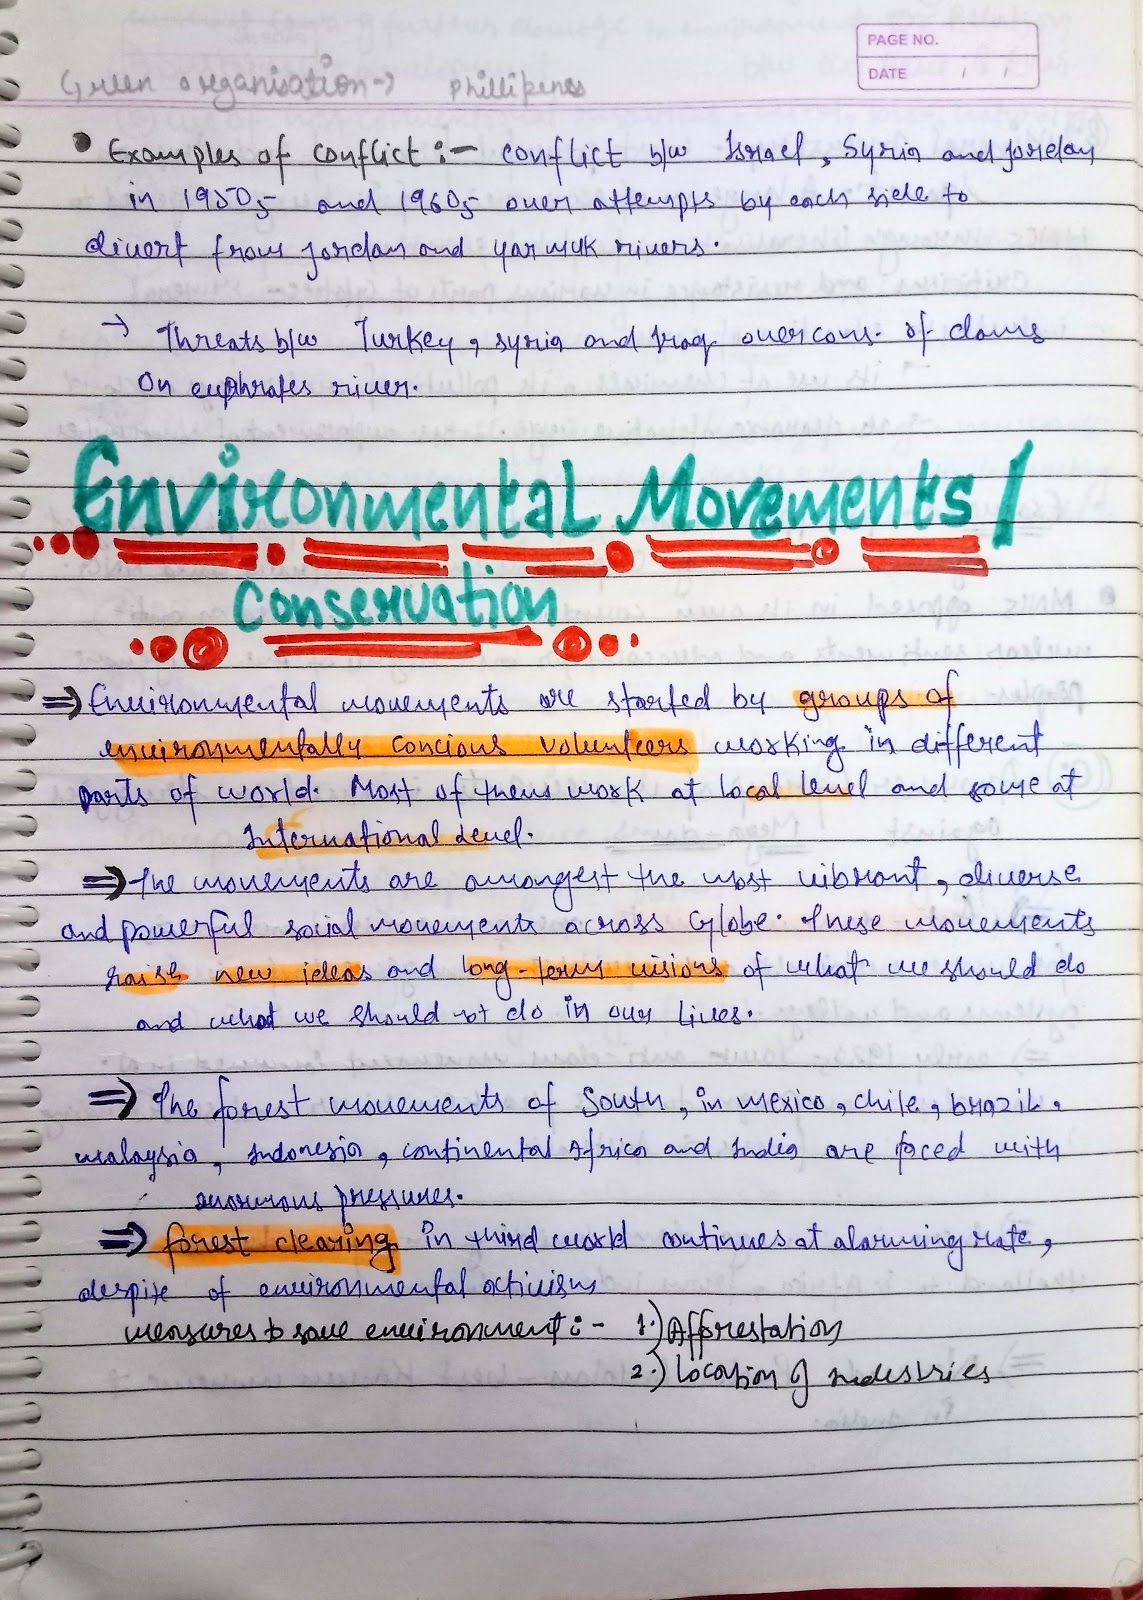 PAGE NO.
DATE
Green organisation → phillipenes
• Examples of conflict :- conflict b/w Israel, Syria and Jordan
in 1950s and 1960s over attempts by each side to
divert from Jordan and Yarmuk rivers.
→ Threats b/w Turkey, syria and Iraq over cons. of dams
on euphrates river.
Environmental Movements /
Conservation
⇒ Environmental movements are started by groups of
environmentally concious volunteers working in different
parts of world. Most of them work at local level and some at
International level.
⇒ The movements are amongest the most vibrant, diverse
and powerful social movements across Globe. These movements
raise new ideas and long-term visions of what we should do
and what we should not do in our lives.
⇒ The forest movements of South, in mexico, chile, brazil,
malaysia, Indonesia, continental Africa and India are faced with
enormous pressures.
⇒ forest clearing in third world continues at alarming rate,
despite of environmental activism
measures to save environment :- 1.) Afforestation
2.) Location of industries